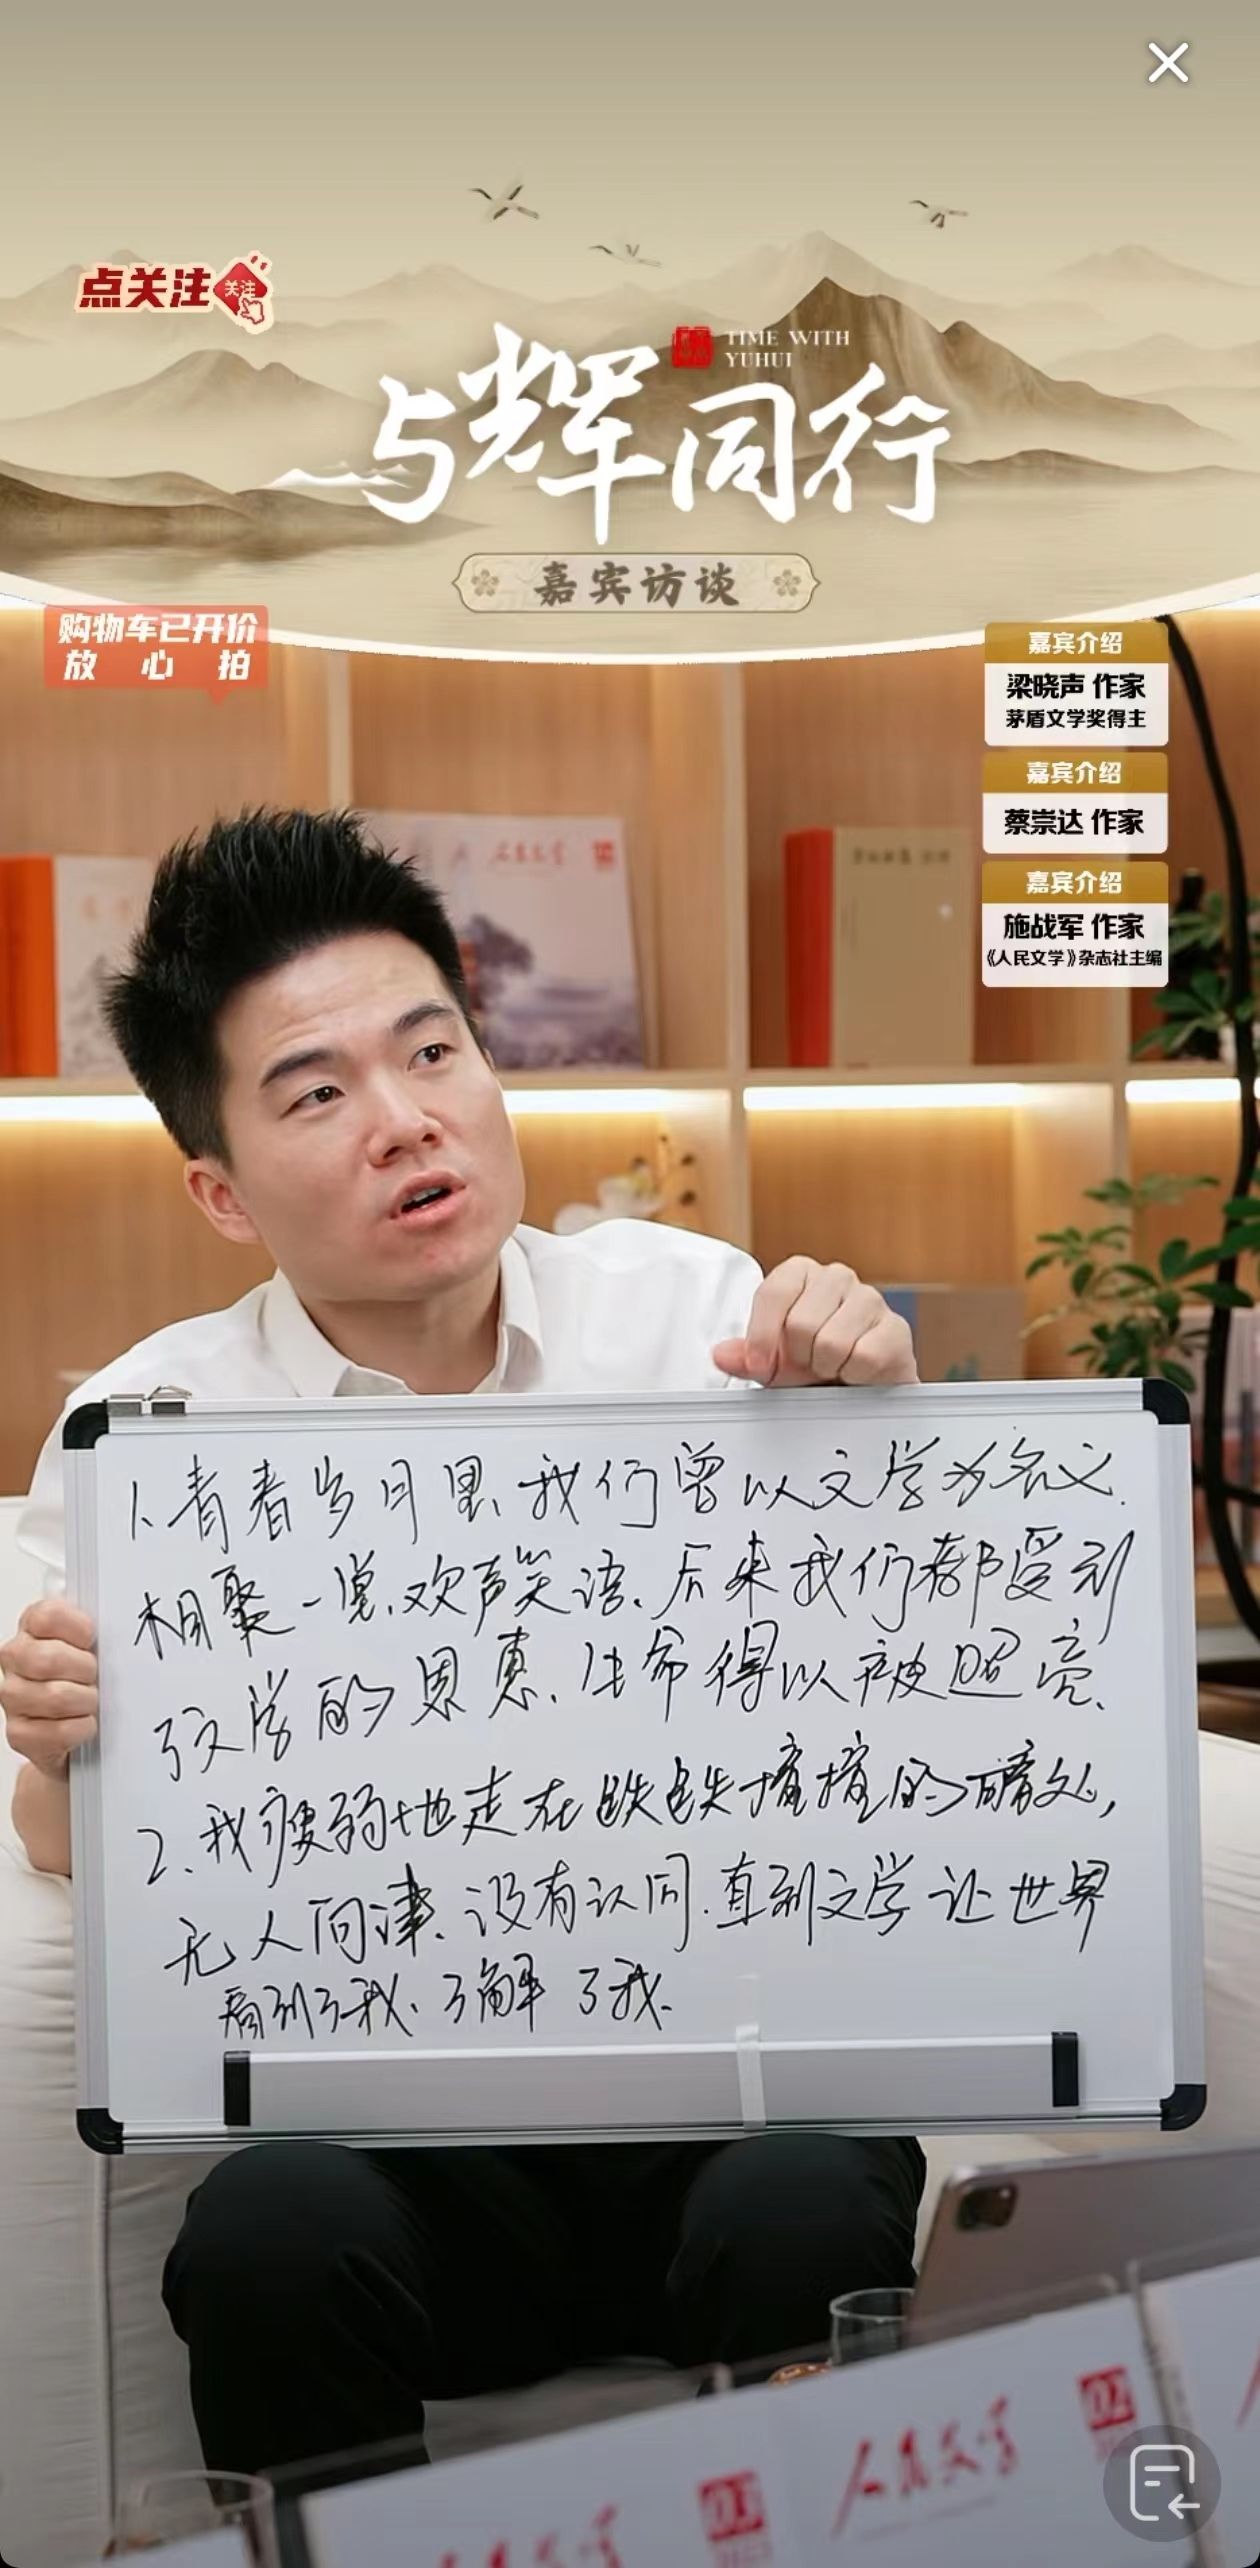 点关注
关注
TIME WITH
YUHUI
与辉同行
嘉宾访谈
购物车已开价
放心拍
嘉宾介绍
梁晓声 作家
茅盾文学奖得主
嘉宾介绍
蔡崇达 作家
嘉宾介绍
施战军 作家
《人民文学》杂志社主编
人民文学
1.青春岁月里、我们曾以文学为名义.
相聚一堂、欢声笑语、后来我们都受到
了文学的恩惠、生命得以被照亮、
2、我瘦弱地走在跌跌撞撞的暗处，
无人问津、没有认同.直到文学让世界
看到了我、了解了我.
人民文学
人民文学